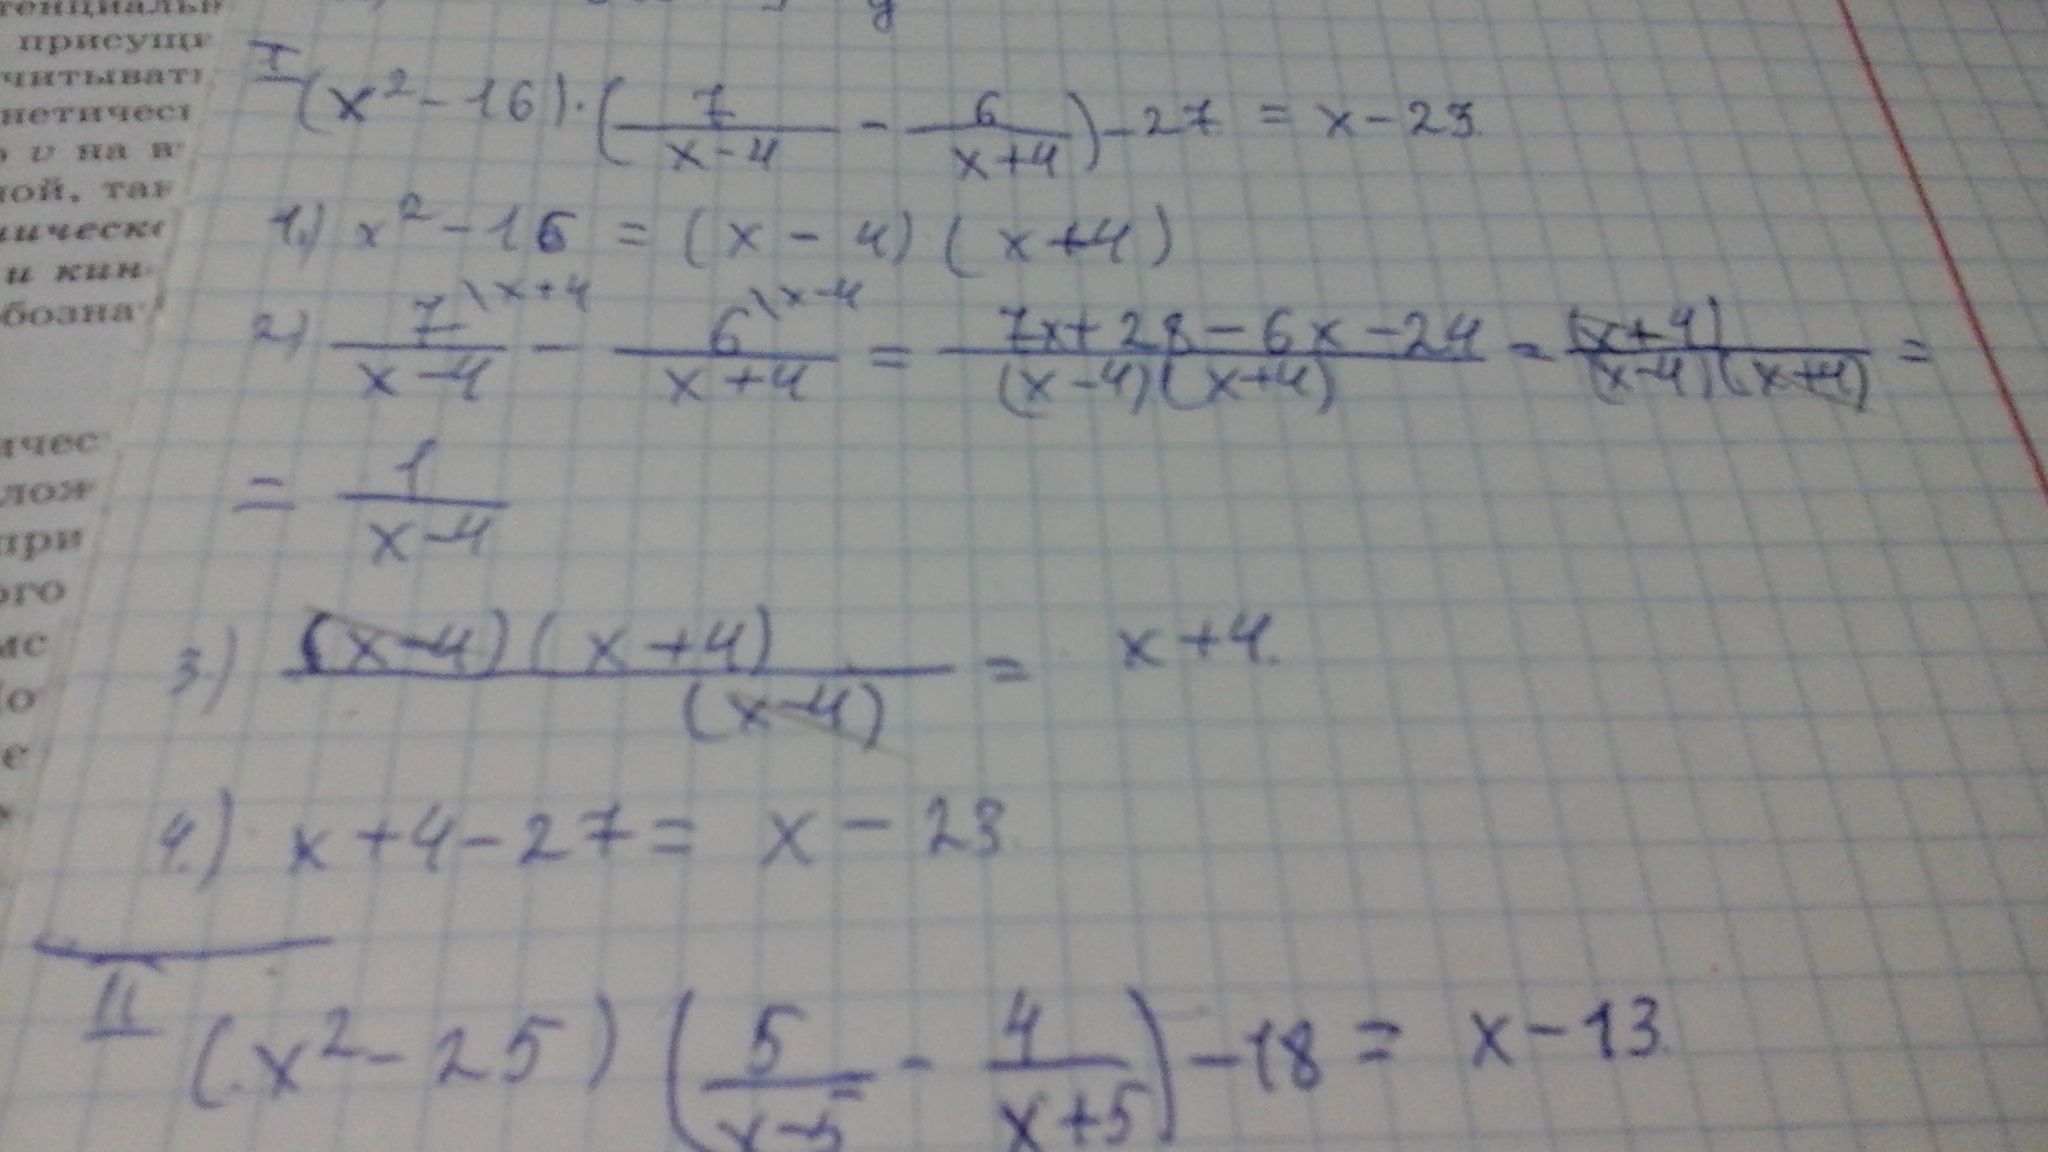 тенциальн
присущ
читывать
нетичес
v на в
ной, так
ническ
и кин
обозна
ичес
лож
при
ого
мс
о
е
I (x² - 16) · (7/(x-4) - 6/(x+4)) - 27 = x - 23
1.) x² - 16 = (x - 4) (x + 4)
2) 7\x+4/(x-4) - 6\x-4/(x+4) = (7x + 28 - 6x - 24)/((x-4)(x+4)) = (x+4)/((x-4)(x+4)) =
= 1/(x-4)
3.) (x-4)(x+4)/(x-4) = x+4.
4.) x + 4 - 27 = x - 23
II (x² - 25) (5/(x-5) - 4/(x+5)) - 18 = x - 13.